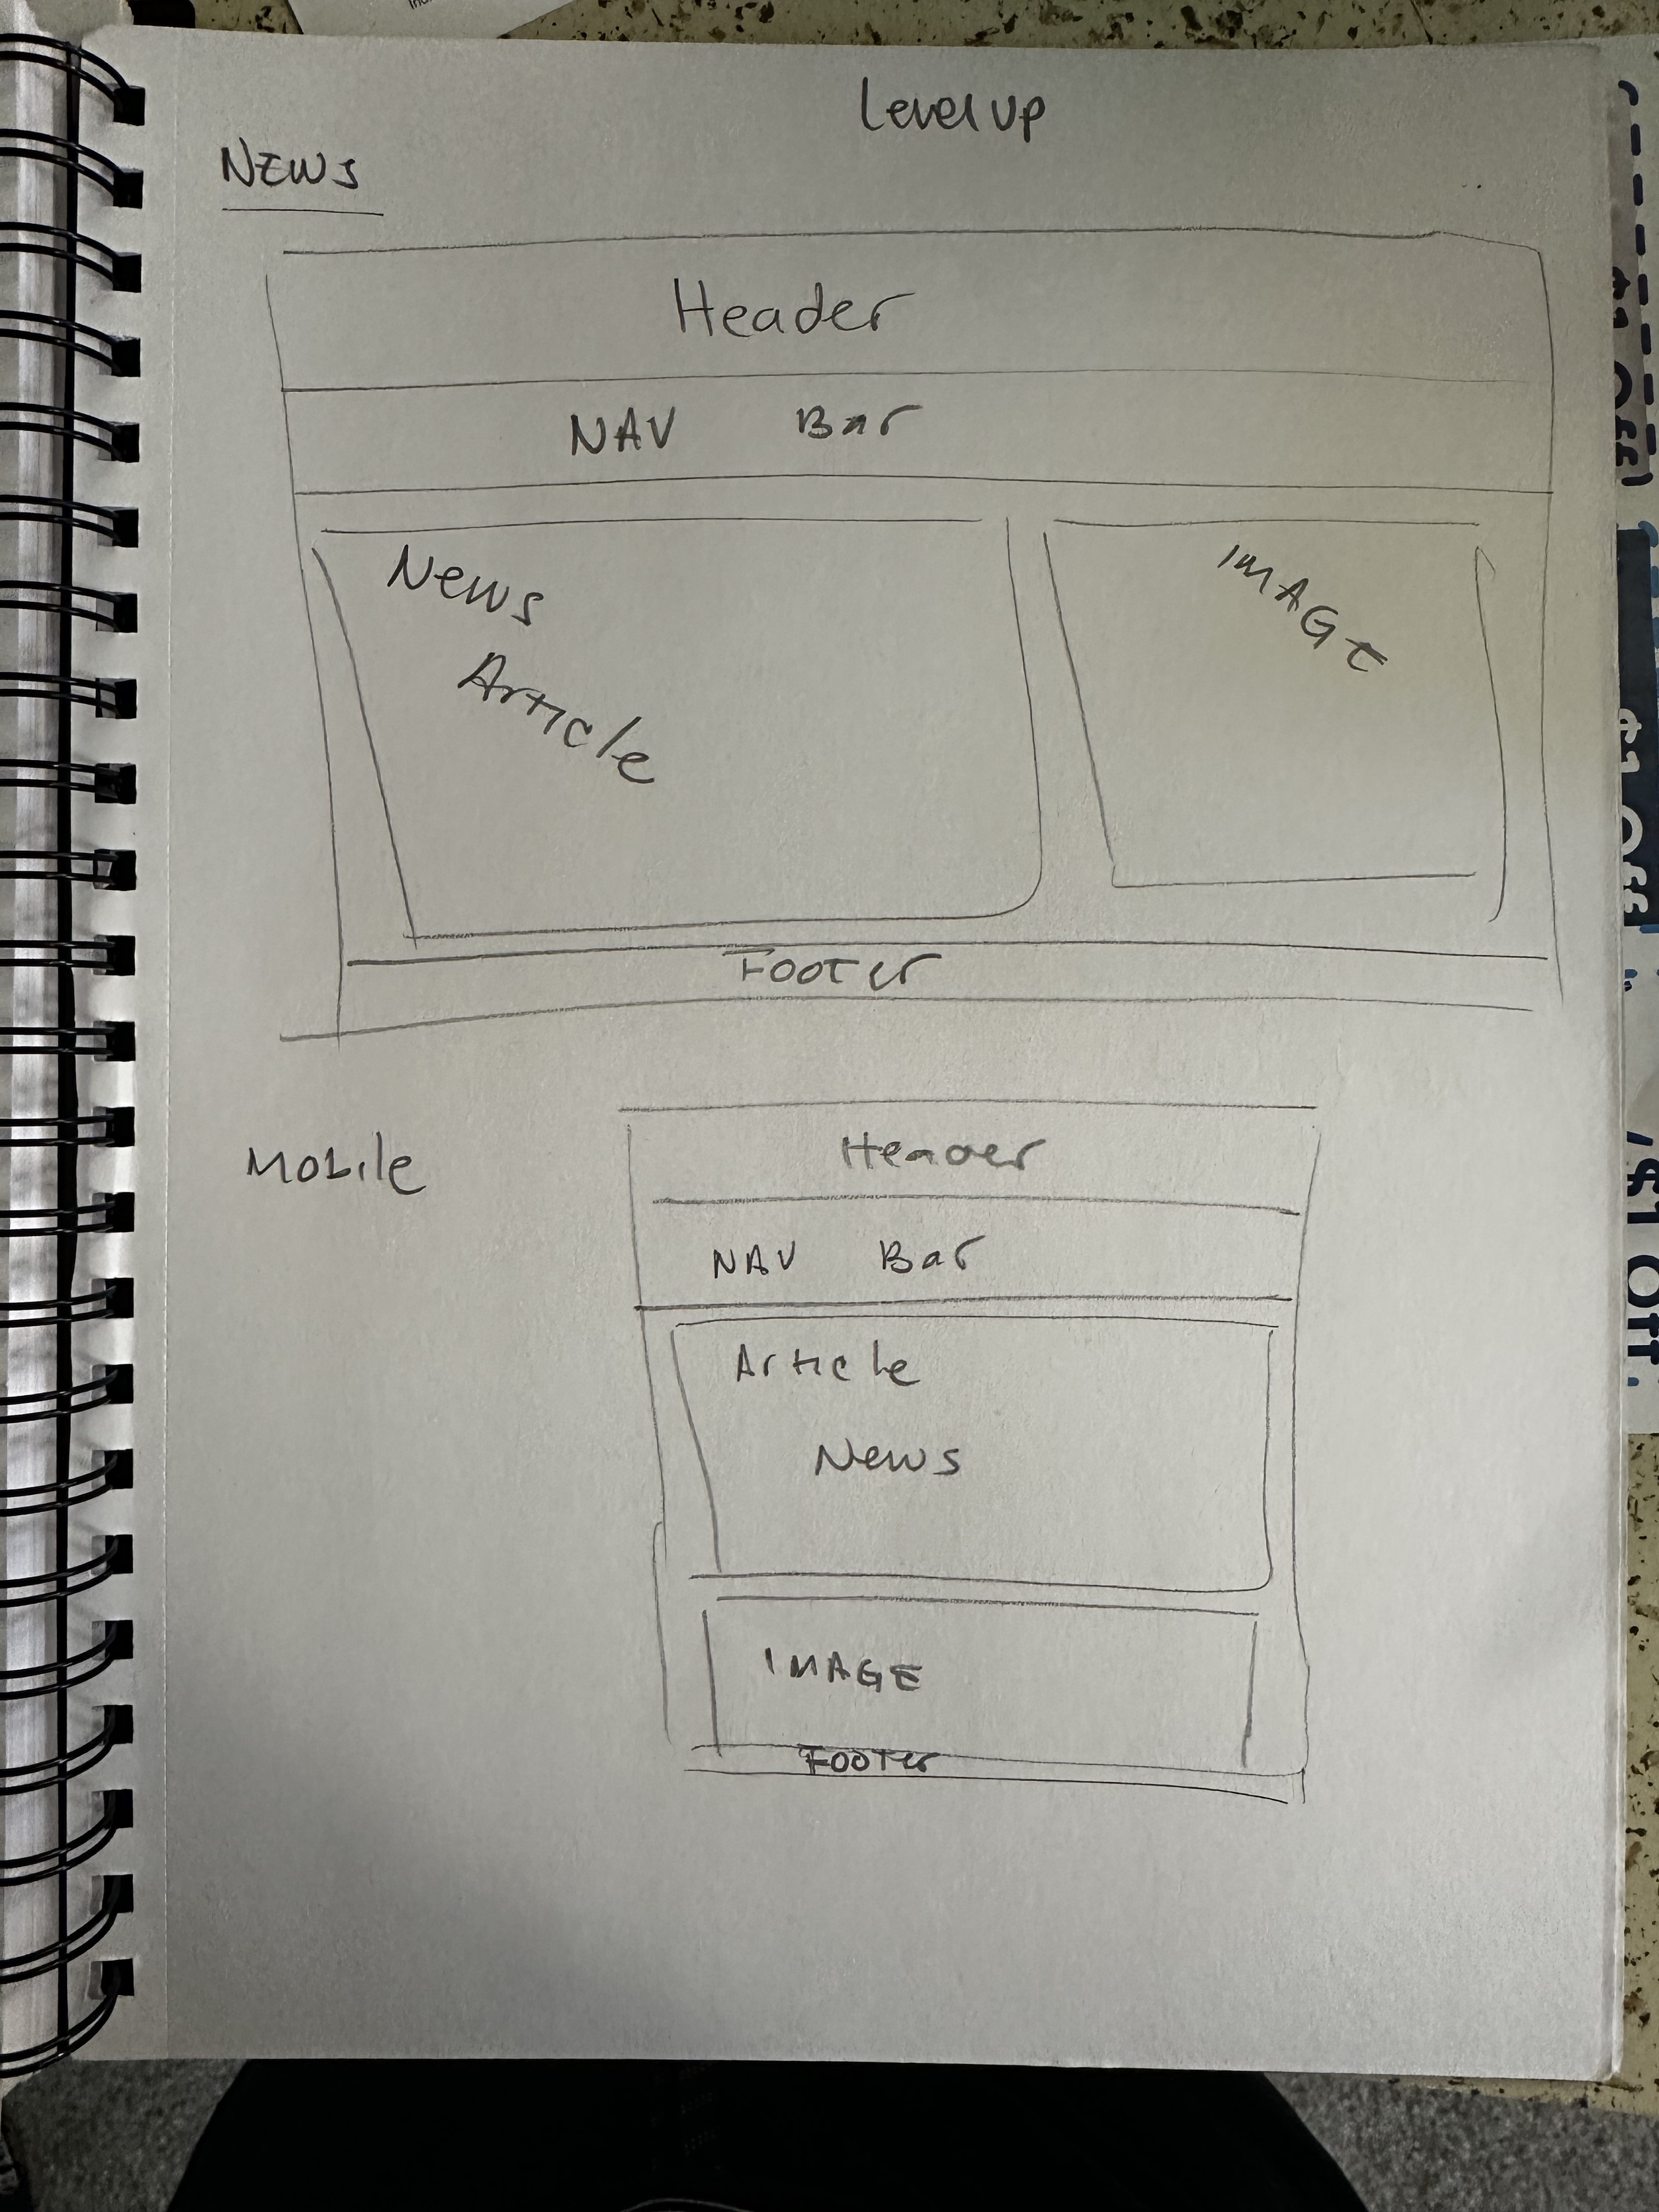 Level up
News
Header
NAV Bar
News
Article
IMAGE
Footer
Mobile
Header
NAV Bar
Article
News
IMAGE
Footer
$1 Off